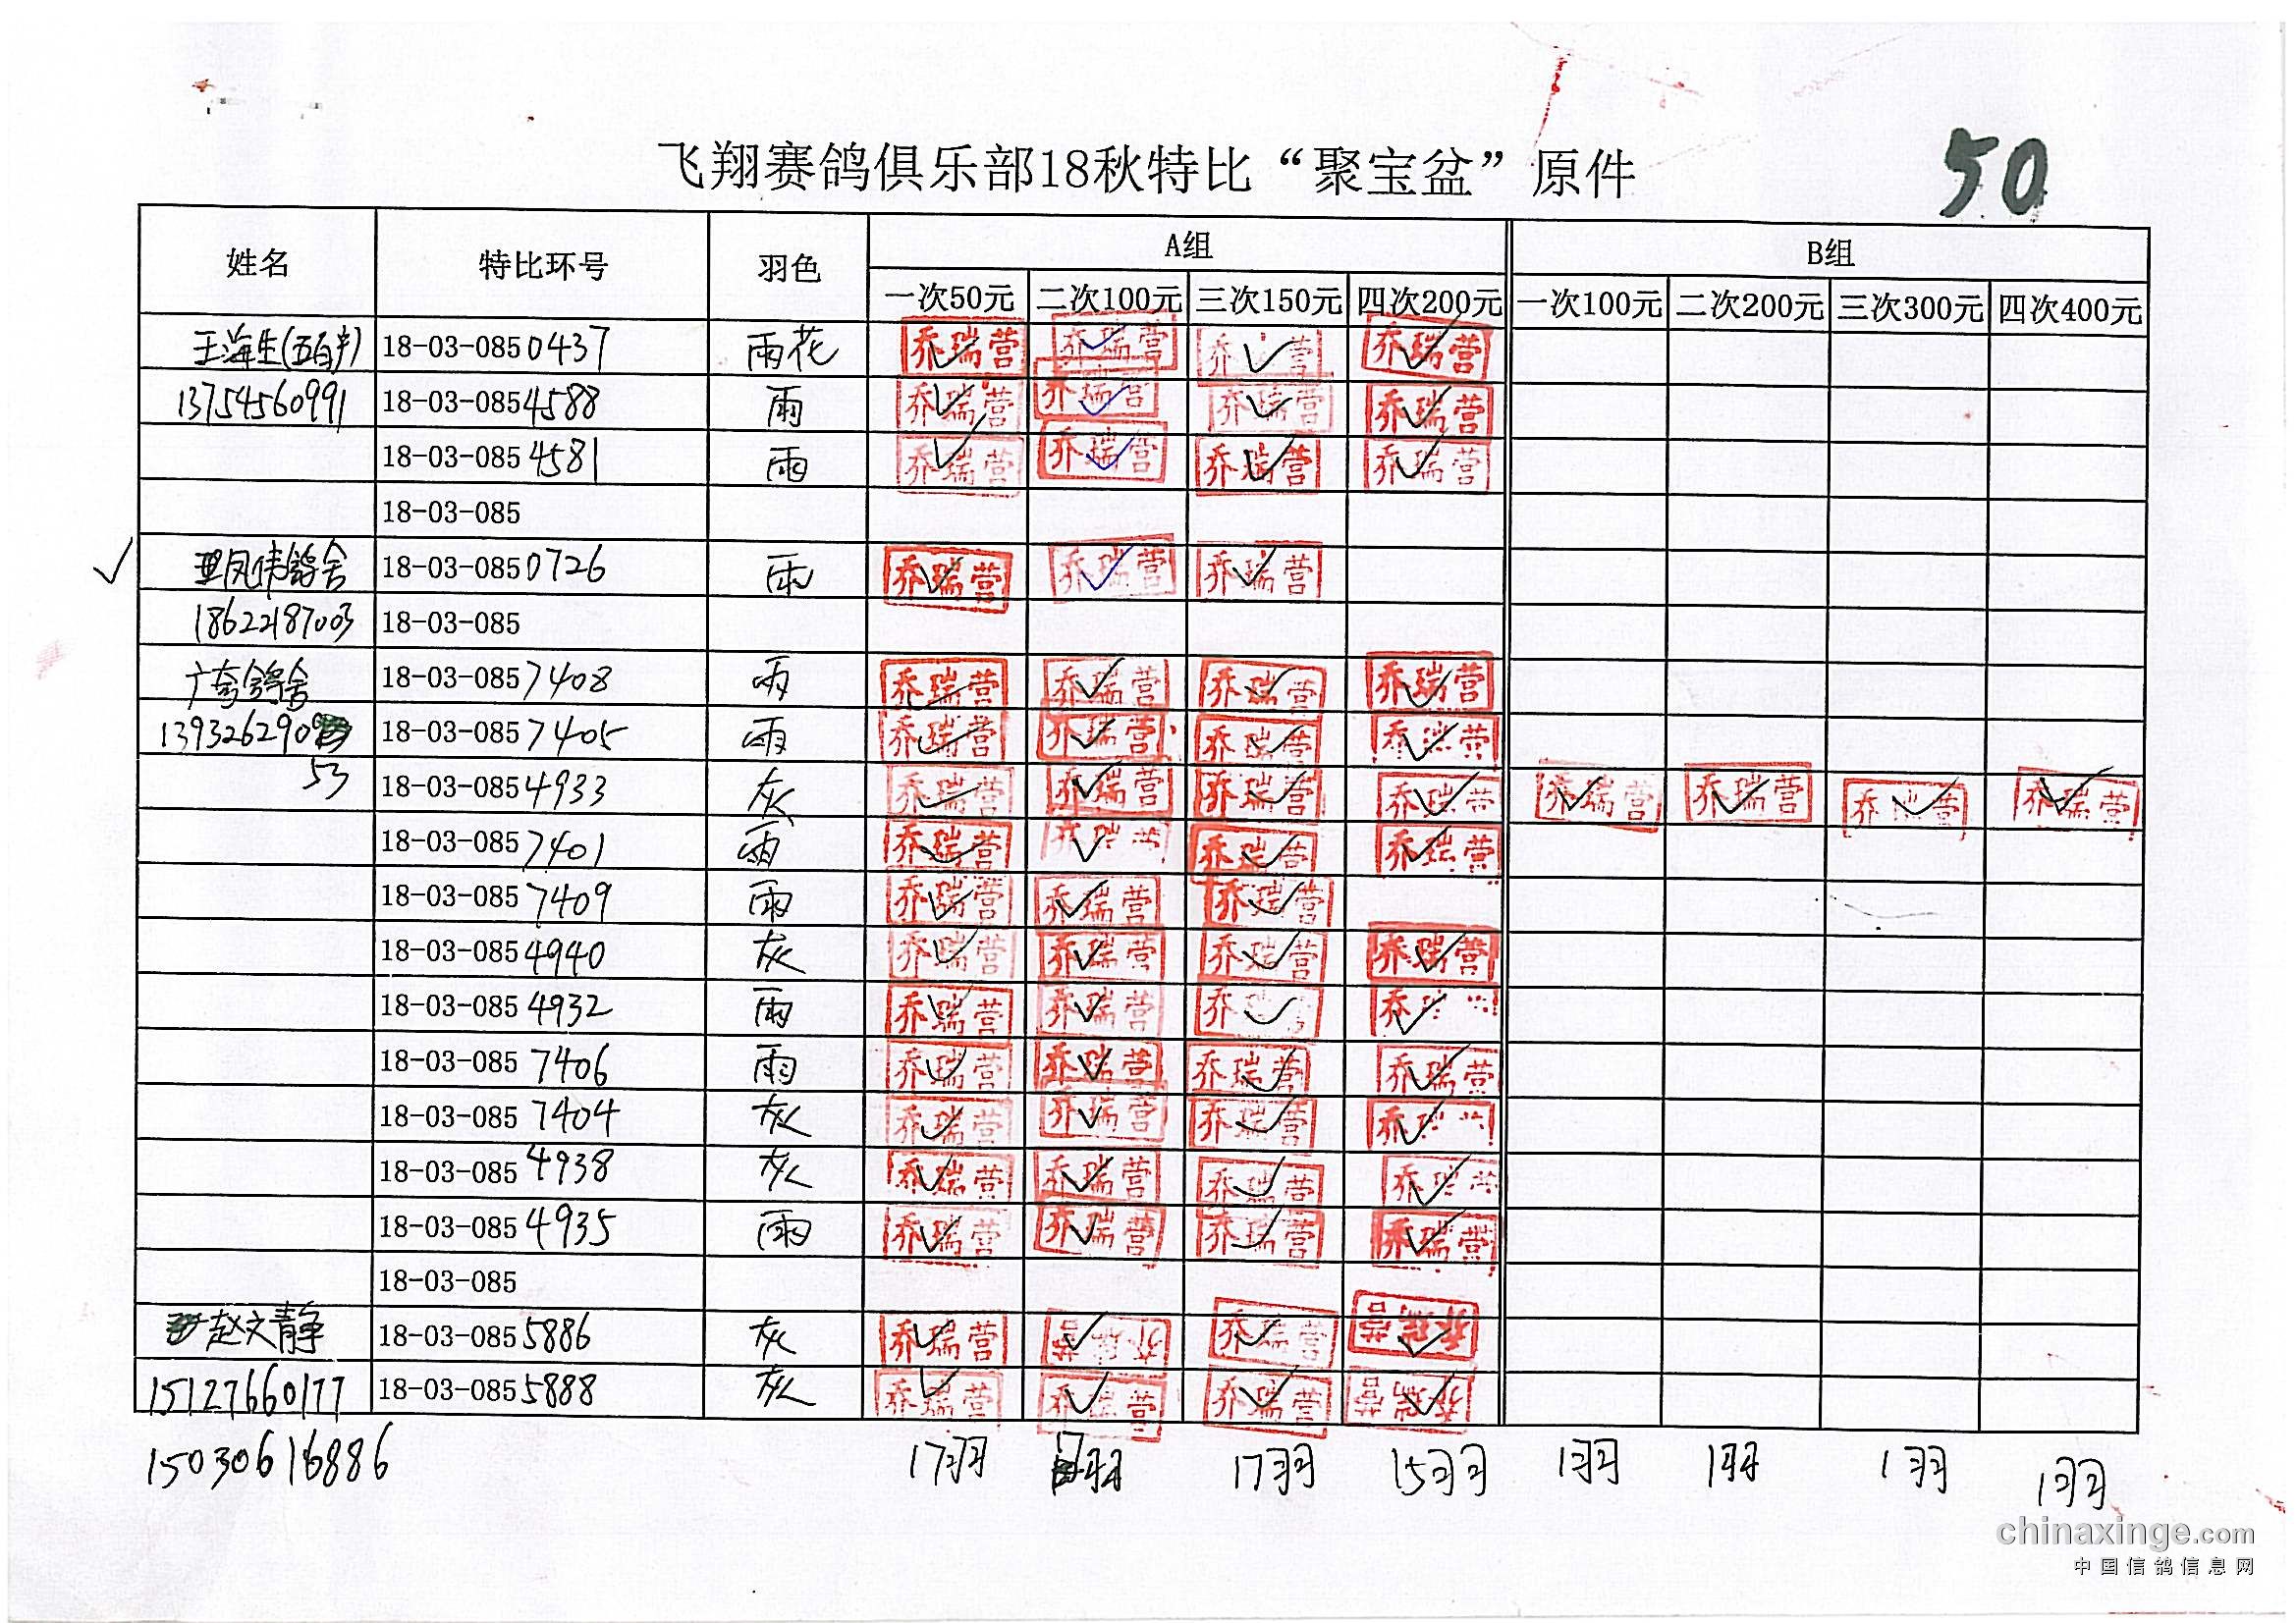 飞翔赛鸽俱乐部18秋特比“聚宝盆”原件
50
姓名 特比环号 羽色 A组 B组
一次50元 二次100元 三次150元 四次200元 一次100元 二次200元 三次300元 四次400元
王海生(五百户) 18-03-0850437 雨花 乔瑞营 乔瑞营 乔 营 乔瑞营
13754560991 18-03-0854588 雨 乔瑞营 乔瑞营 乔瑞营 乔瑞营
18-03-0854581 雨 乔瑞营 乔瑞营 乔瑞营 乔瑞营
18-03-085
凤伟鸽舍 18-03-0850726 雨 乔瑞营 乔瑞营 乔瑞营
18622187003 18-03-085
鸽舍 18-03-0857408 雨 乔瑞营 乔瑞营 乔瑞营 乔瑞营
139326290 18-03-0857405 雨 乔瑞营 乔瑞营 乔瑞营 乔瑞营
53 18-03-0854933 灰 乔瑞营 乔瑞营 乔瑞营 乔瑞营 乔瑞营 乔瑞营 乔瑞营 乔瑞营
18-03-0857401 雨 乔瑞营 乔瑞营 乔瑞营 乔瑞营
18-03-0857409 雨 乔瑞营 乔瑞营 乔瑞营
18-03-0854940 灰 乔瑞营 乔瑞营 乔瑞营 乔瑞营
18-03-0854932 雨 乔瑞营 乔瑞营 乔 乔
18-03-0857406 雨 乔瑞营 乔瑞营 乔瑞营 乔瑞营
18-03-0857404 灰 乔瑞营 乔瑞营 乔瑞营 乔瑞
18-03-0854938 灰 乔瑞营 乔瑞营 乔瑞营 乔瑞
18-03-0854935 雨 乔瑞营 乔瑞营 乔瑞营 乔瑞营
18-03-085
赵文静 18-03-0855886 灰 乔瑞营 乔瑞营 乔瑞营 乔瑞营
15127660177 18-03-0855888 灰 乔瑞营 乔瑞营 乔瑞营 乔瑞营
15030616886 17羽 17羽 17羽 15羽 1羽 1羽 1羽 1羽
chinaxinge.com
中国信鸽信息网